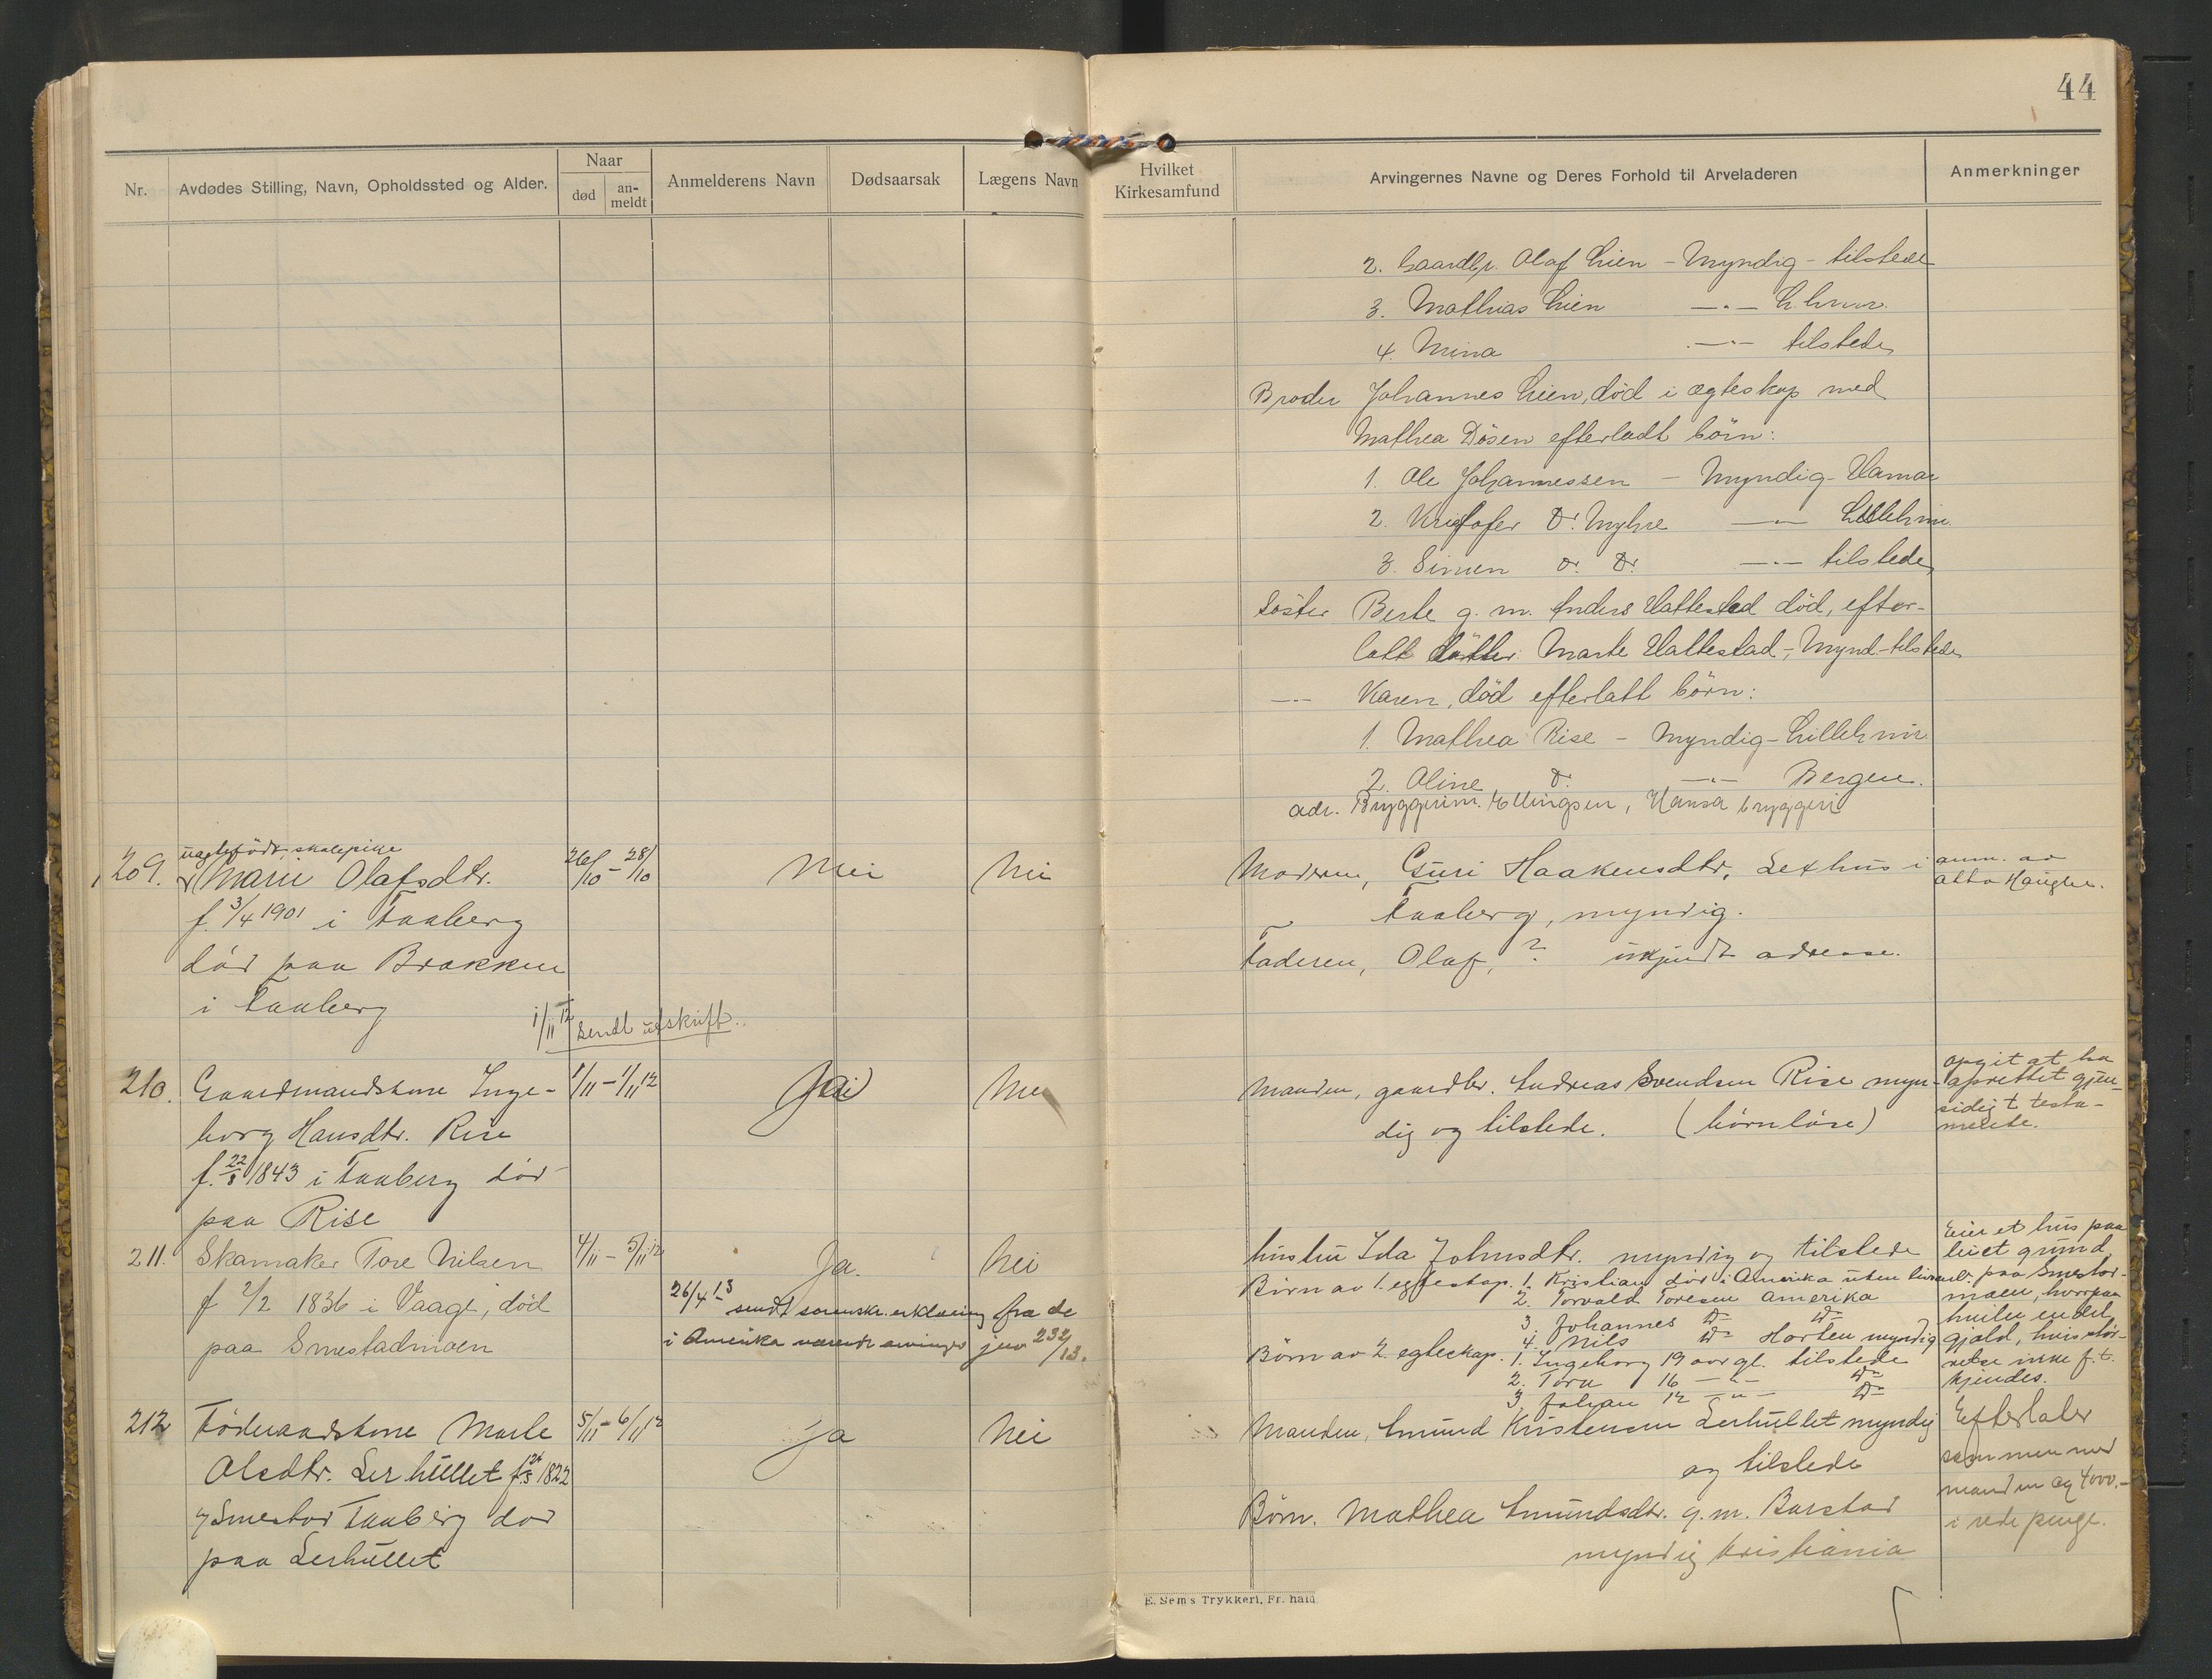 44
Nr.
Avdødes Stilling, Navn, Opholdssted og Alder.
Naar
død
an-
meldt
Anmelderens Navn
Dødsaarsak
Lægens Navn
Hvilket
Kirkesamfund
Arvingernes Navne og Deres Forhold til Arveladeren
Anmerkninger
2. Gaardbr. Olaf Lien - Myndig - tilstede
3. Mathias Lien —"— L.hmr.
4. Mina —"— tilstede
Broder Johannes Lien, død i ægteskap med
Mathea Dösen efterladt börn:
1. Ole Johannessen - Myndig - Hamar
2. Kristofer Do. Myhre —"— Lillehmr.
3. Simen Do. Do. —"— tilstede
Söster Berte g. m. Anders Hattestad död, efter-
latt datter Marte Hattestad -, Mynd - tilstede
—"— Karen, död efterlatt börn:
1. Mathea Rise - Myndig - Lillehmr.
2. Oline Do. —"— Bergen.
adr. Bryggerim. Ellingsen, Hansa bryggeri
209.
uegtefödt, skolepike
Marie Olafsdtr.
f. 3/4 1901 i Faaberg
död paa Brakken
i Faaberg
26/10 - 28/10
Nei
Nei
Moderen, Guri Haakensdtr, i
Faaberg, myndig.
Faderen, Olaf, ? ukjendt adresse.
anm. av
1/11 12 Sendt utskrift.
210.
Gaardmandskone Inge-
borg Hansdtr. Rise
f. 22/8 1843 i Faaberg död
paa Rise
1/11 - 1/11 12
Ja
Nei
Manden, gaardbr. Andreas Svendsen Rise myn-
dig og tilstede. (börnlöse)
opgit at ha
oprettet gjen-
sidigt testa-
mente.
211.
Skomaker Tore Nilsen
f 2/2 1836 i Vaage, död
paa Smestadmoen
4/11 - 5/11 12
Ja.
Nei
26/4 13 sendt sorenskr. erklæring fra de
i Amerika værende arvinger
hustru Ida Johnsdtr. myndig og tilstede
Börn av 1. egteskap. 1. Kristian död i Amerika uten
2. Torvald Toresen Amerika
3. Johannes Do Do
4. Nils Do Horten myndig
Börn av 2. egteskap. 1. Ingeborg 19 aar gl. tilstede
2. Tora 16 —"— Do
3. Johan 12 —"— Do
Eier et hus paa
leiet grund
paa Smestad-
moen, hvorpaa
hviler endel
gjæld, hvis stör-
relse ikke f.t.
kjendes.
212
Föderaadskone Marte
Olsdtr. Lerhullet f. 1822
Smestad Faaberg död
paa Lerhullet
5/11 - 6/11 12
Ja
Nei
Manden, Amund Kristensen Lerhullet myndig
og tilstede
Börn. Mathea Amundsdtr. g. m. Barstad
myndig Kristiania
Efterlater
sammen med
manden 4000.-
i rede penge.
E. Sem's Trykkeri, Fr. hald